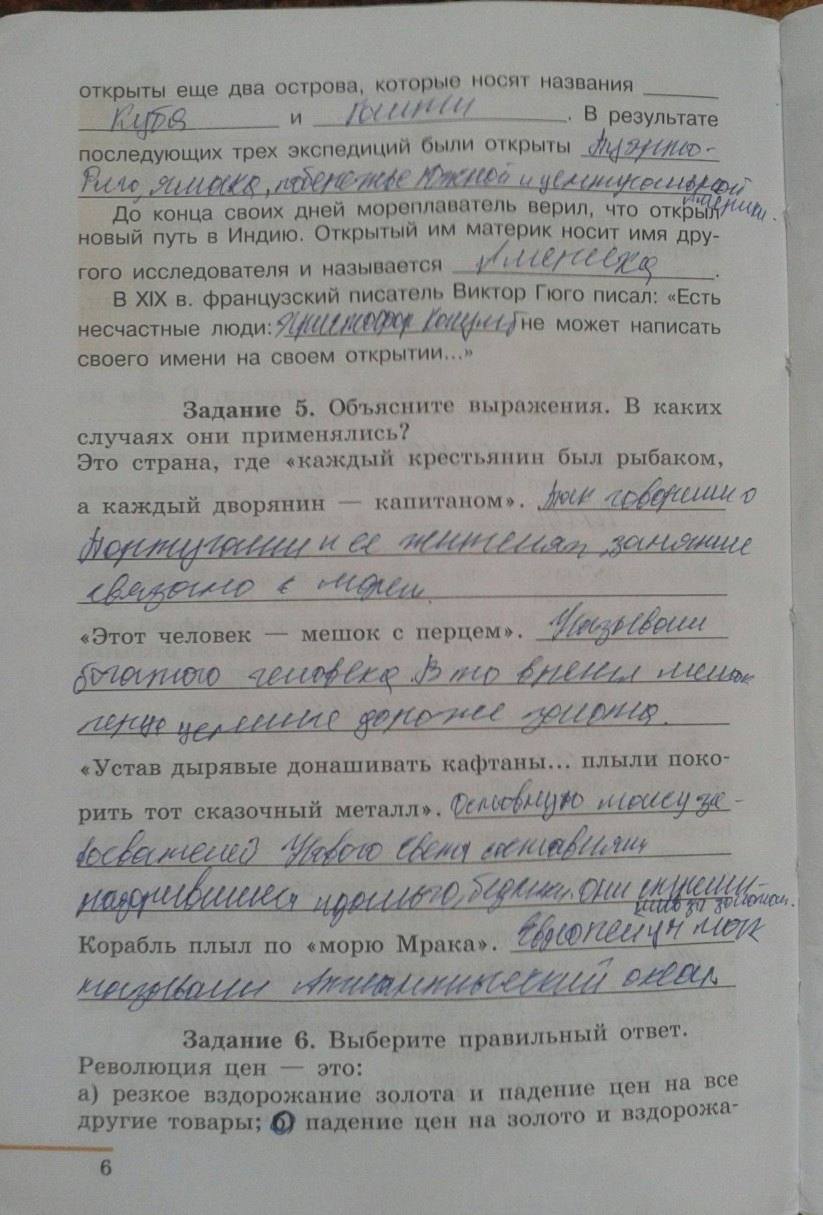 открыты еще два острова, которые носят названия
Куба и Гаити. В результате
последующих трех экспедиций были открыты Пуэрто-
Рико, Ямайка, побережье Южной и Центральной
Америки.
До конца своих дней мореплаватель верил, что открыл
новый путь в Индию. Открытый им материк носит имя дру-
гого исследователя и называется Америка.
В XIX в. французский писатель Виктор Гюго писал: «Есть
несчастные люди: Христофор Колумб не может написать
своего имени на своем открытии...»
Задание 5. Объясните выражения. В каких
случаях они применялись?
Это страна, где «каждый крестьянин был рыбаком,
а каждый дворянин — капитаном». Так говорили о
Португалии и её жителях, занятие
связано с морем.
«Этот человек — мешок с перцем». Называли
богатого человека. В то время мешок
перца дороже золота.
«Устав дырявые донашивать кафтаны... плыли поко-
рить тот сказочный металл». Основную массу за-
воевателей Нового Света составляли
идальго, бедняки. они
за золотом.
Корабль плыл по «морю Мрака». Европейцы так
называли Атлантический океан.
Задание 6. Выберите правильный ответ.
Революция цен — это:
а) резкое вздорожание золота и падение цен на все
другие товары; б) падение цен на золото и вздорожа-
6